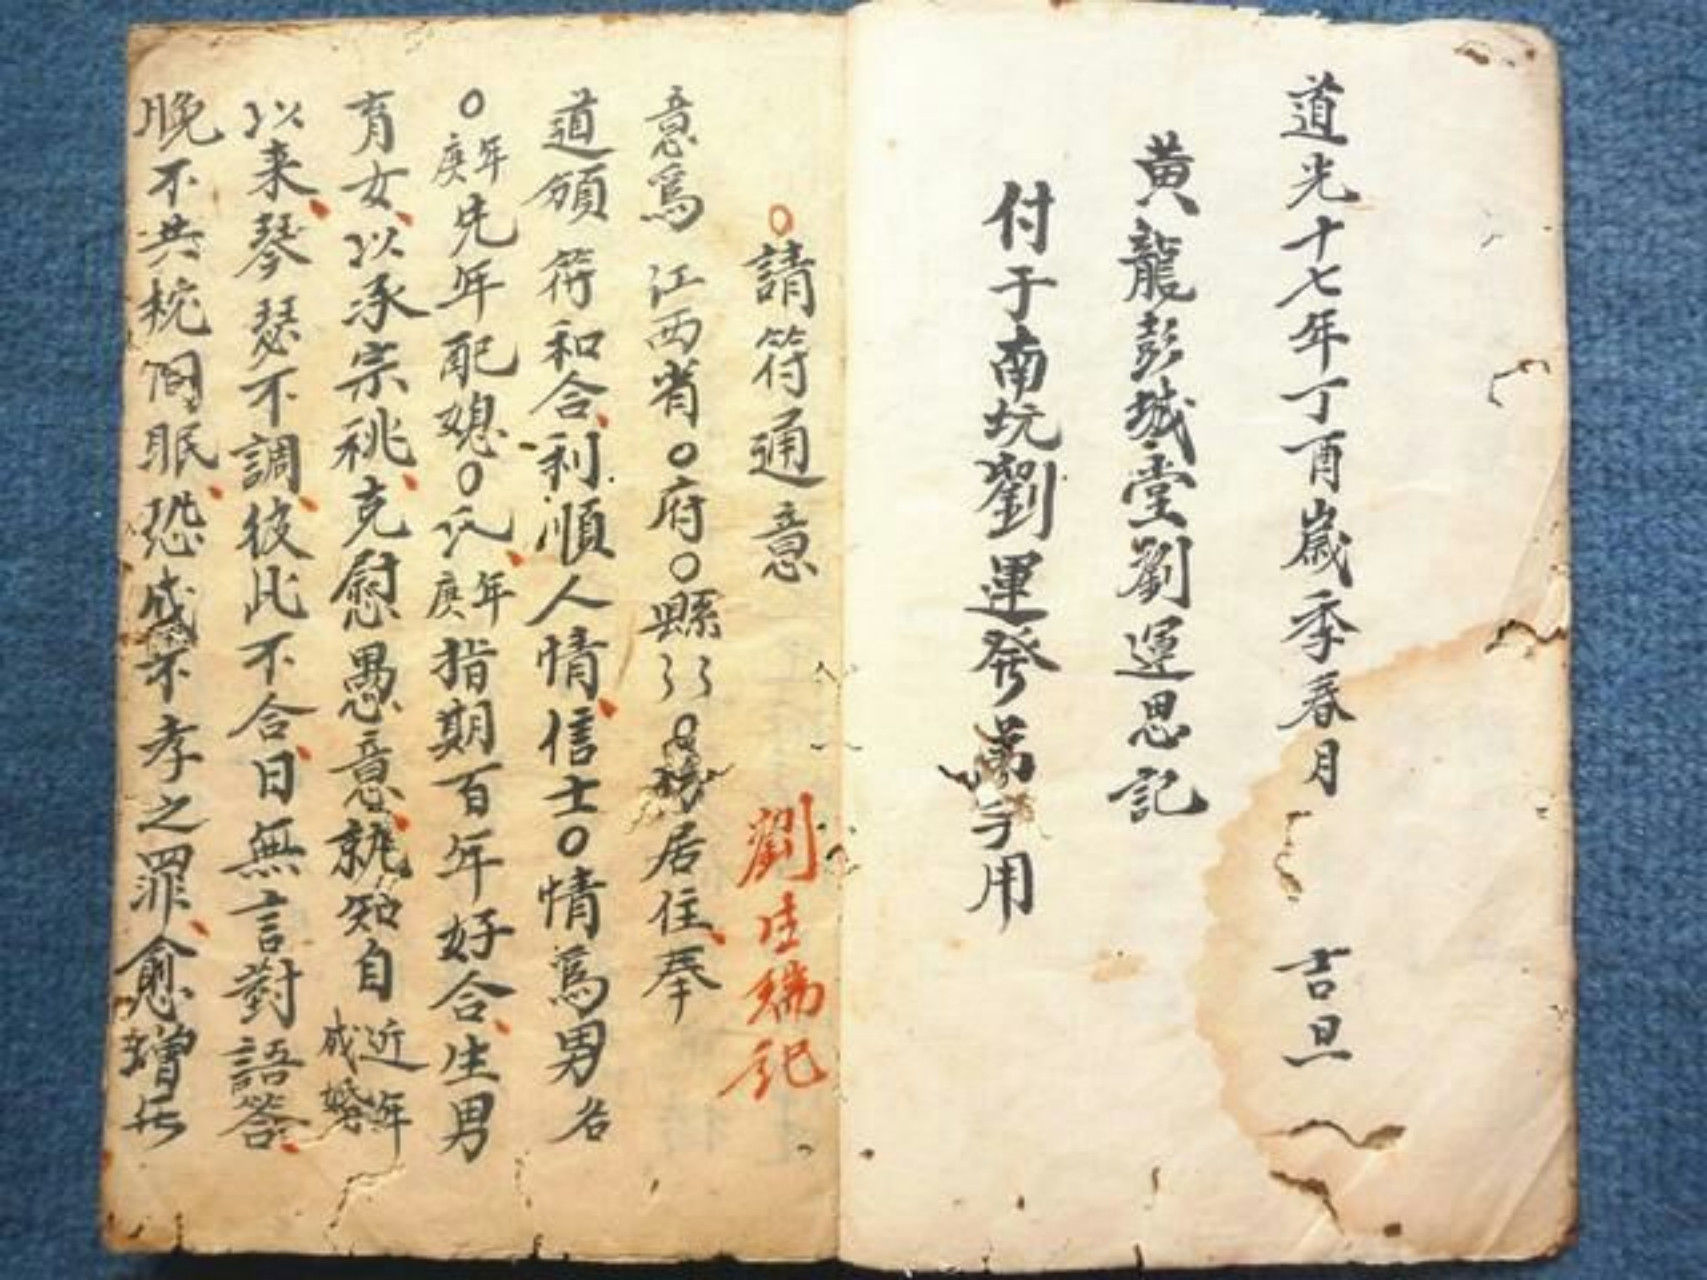 道光十七年丁酉歲季春月 吉旦
黃龍彭城堂劉運思記
付于南坑劉運發弟子用
○請符通意
劉生瑞記
意爲 江西省○府○縣 居住奉
道頒符和合利順人情信士○情爲男名
○年庚先年配媳○氏年庚指期百年好合生男
育女以承宗祧克慰愚意就知自近年成婚
以来琴瑟不調彼此不合日無言對語答
晚不共枕同眠恐成不孝之罪愈增